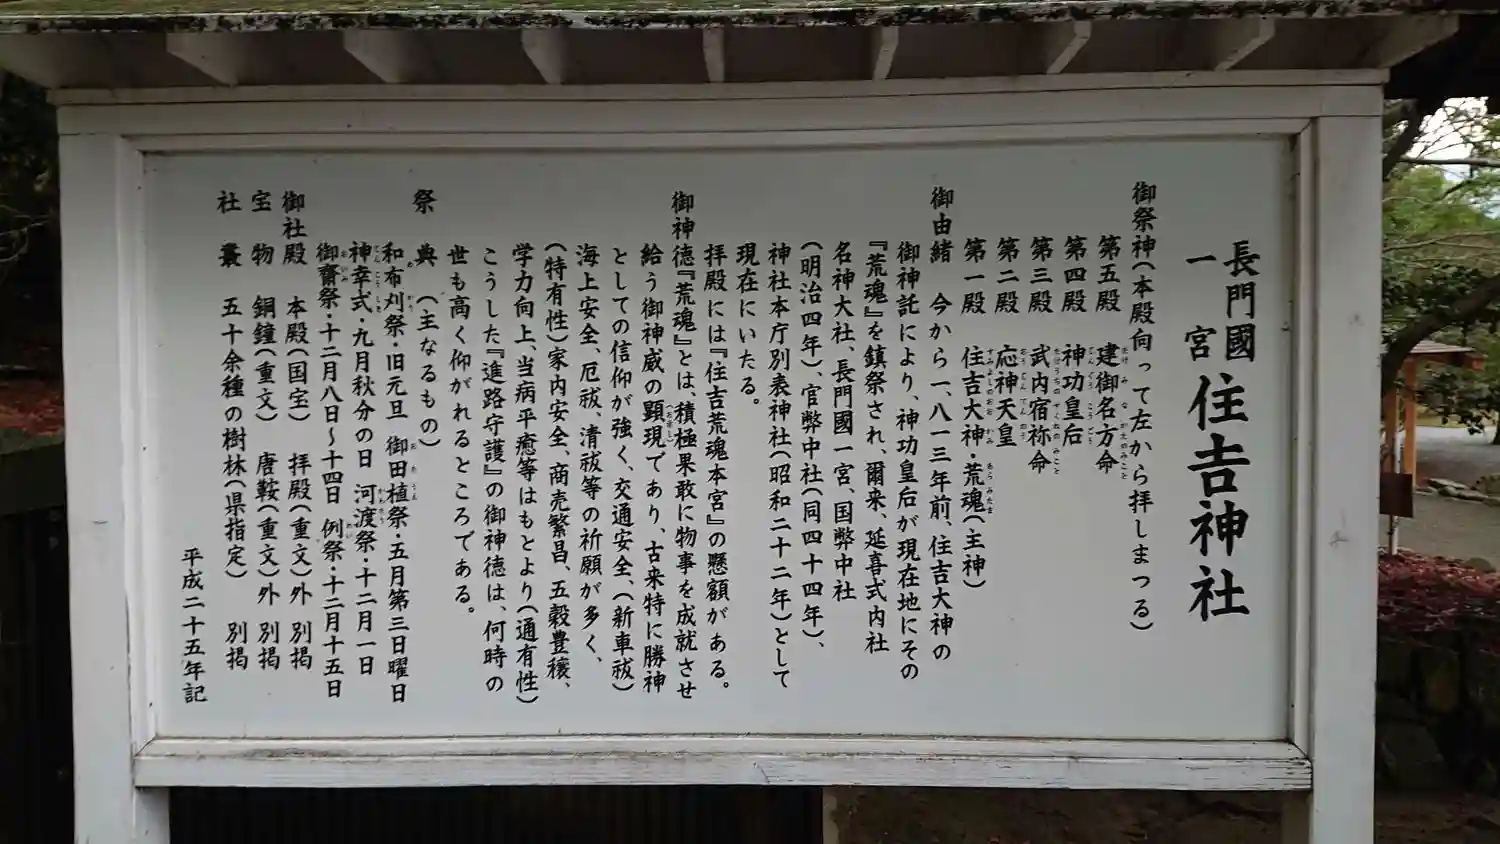 長門國
一宮 住吉神社
御祭神(本殿向って左から拝しまつる)
第五殿 建御名方命
第四殿 神功皇后
第三殿 武内宿祢命
第二殿 応神天皇
第一殿 住吉大神・荒魂(主神)
御由緒 今から一、八一三年前、住吉大神の
御神託により、神功皇后が現在地にその
『荒魂』を鎮祭され、爾来、延喜式内社
名神大社、長門國一宮、国弊中社
(明治四年)、官弊中社(同四十四年)、
神社本庁別表神社(昭和二十二年)として
現在にいたる。
拝殿には『住吉荒魂本宮』の懸額がある。
御神徳『荒魂』とは、積極果敢に物事を成就させ
給う御神威の顕現であり、古来特に勝神
としての信仰が強く、交通安全、(新車祓)
海上安全、厄祓、清祓等の祈願が多く、
(特有性)家内安全、商売繁昌、五穀豊穣、
学力向上、当病平癒等はもとより(通有性)
こうした『進路守護』の御神徳は、何時の
世も高く仰がれるところである。
祭典(主なるもの)
和布刈祭・旧元旦 御田植祭・五月第三日曜日
神幸式・九月秋分の日 河渡祭・十二月一日
御齋祭・十二月八日〜十四日 例祭・十二月十五日
御社殿 本殿(国宝) 拝殿(重文)外 別掲
宝物 銅鐘(重文) 唐鞍(重文)外 別掲
社叢 五十余種の樹林(県指定) 別掲
平成二十五年記